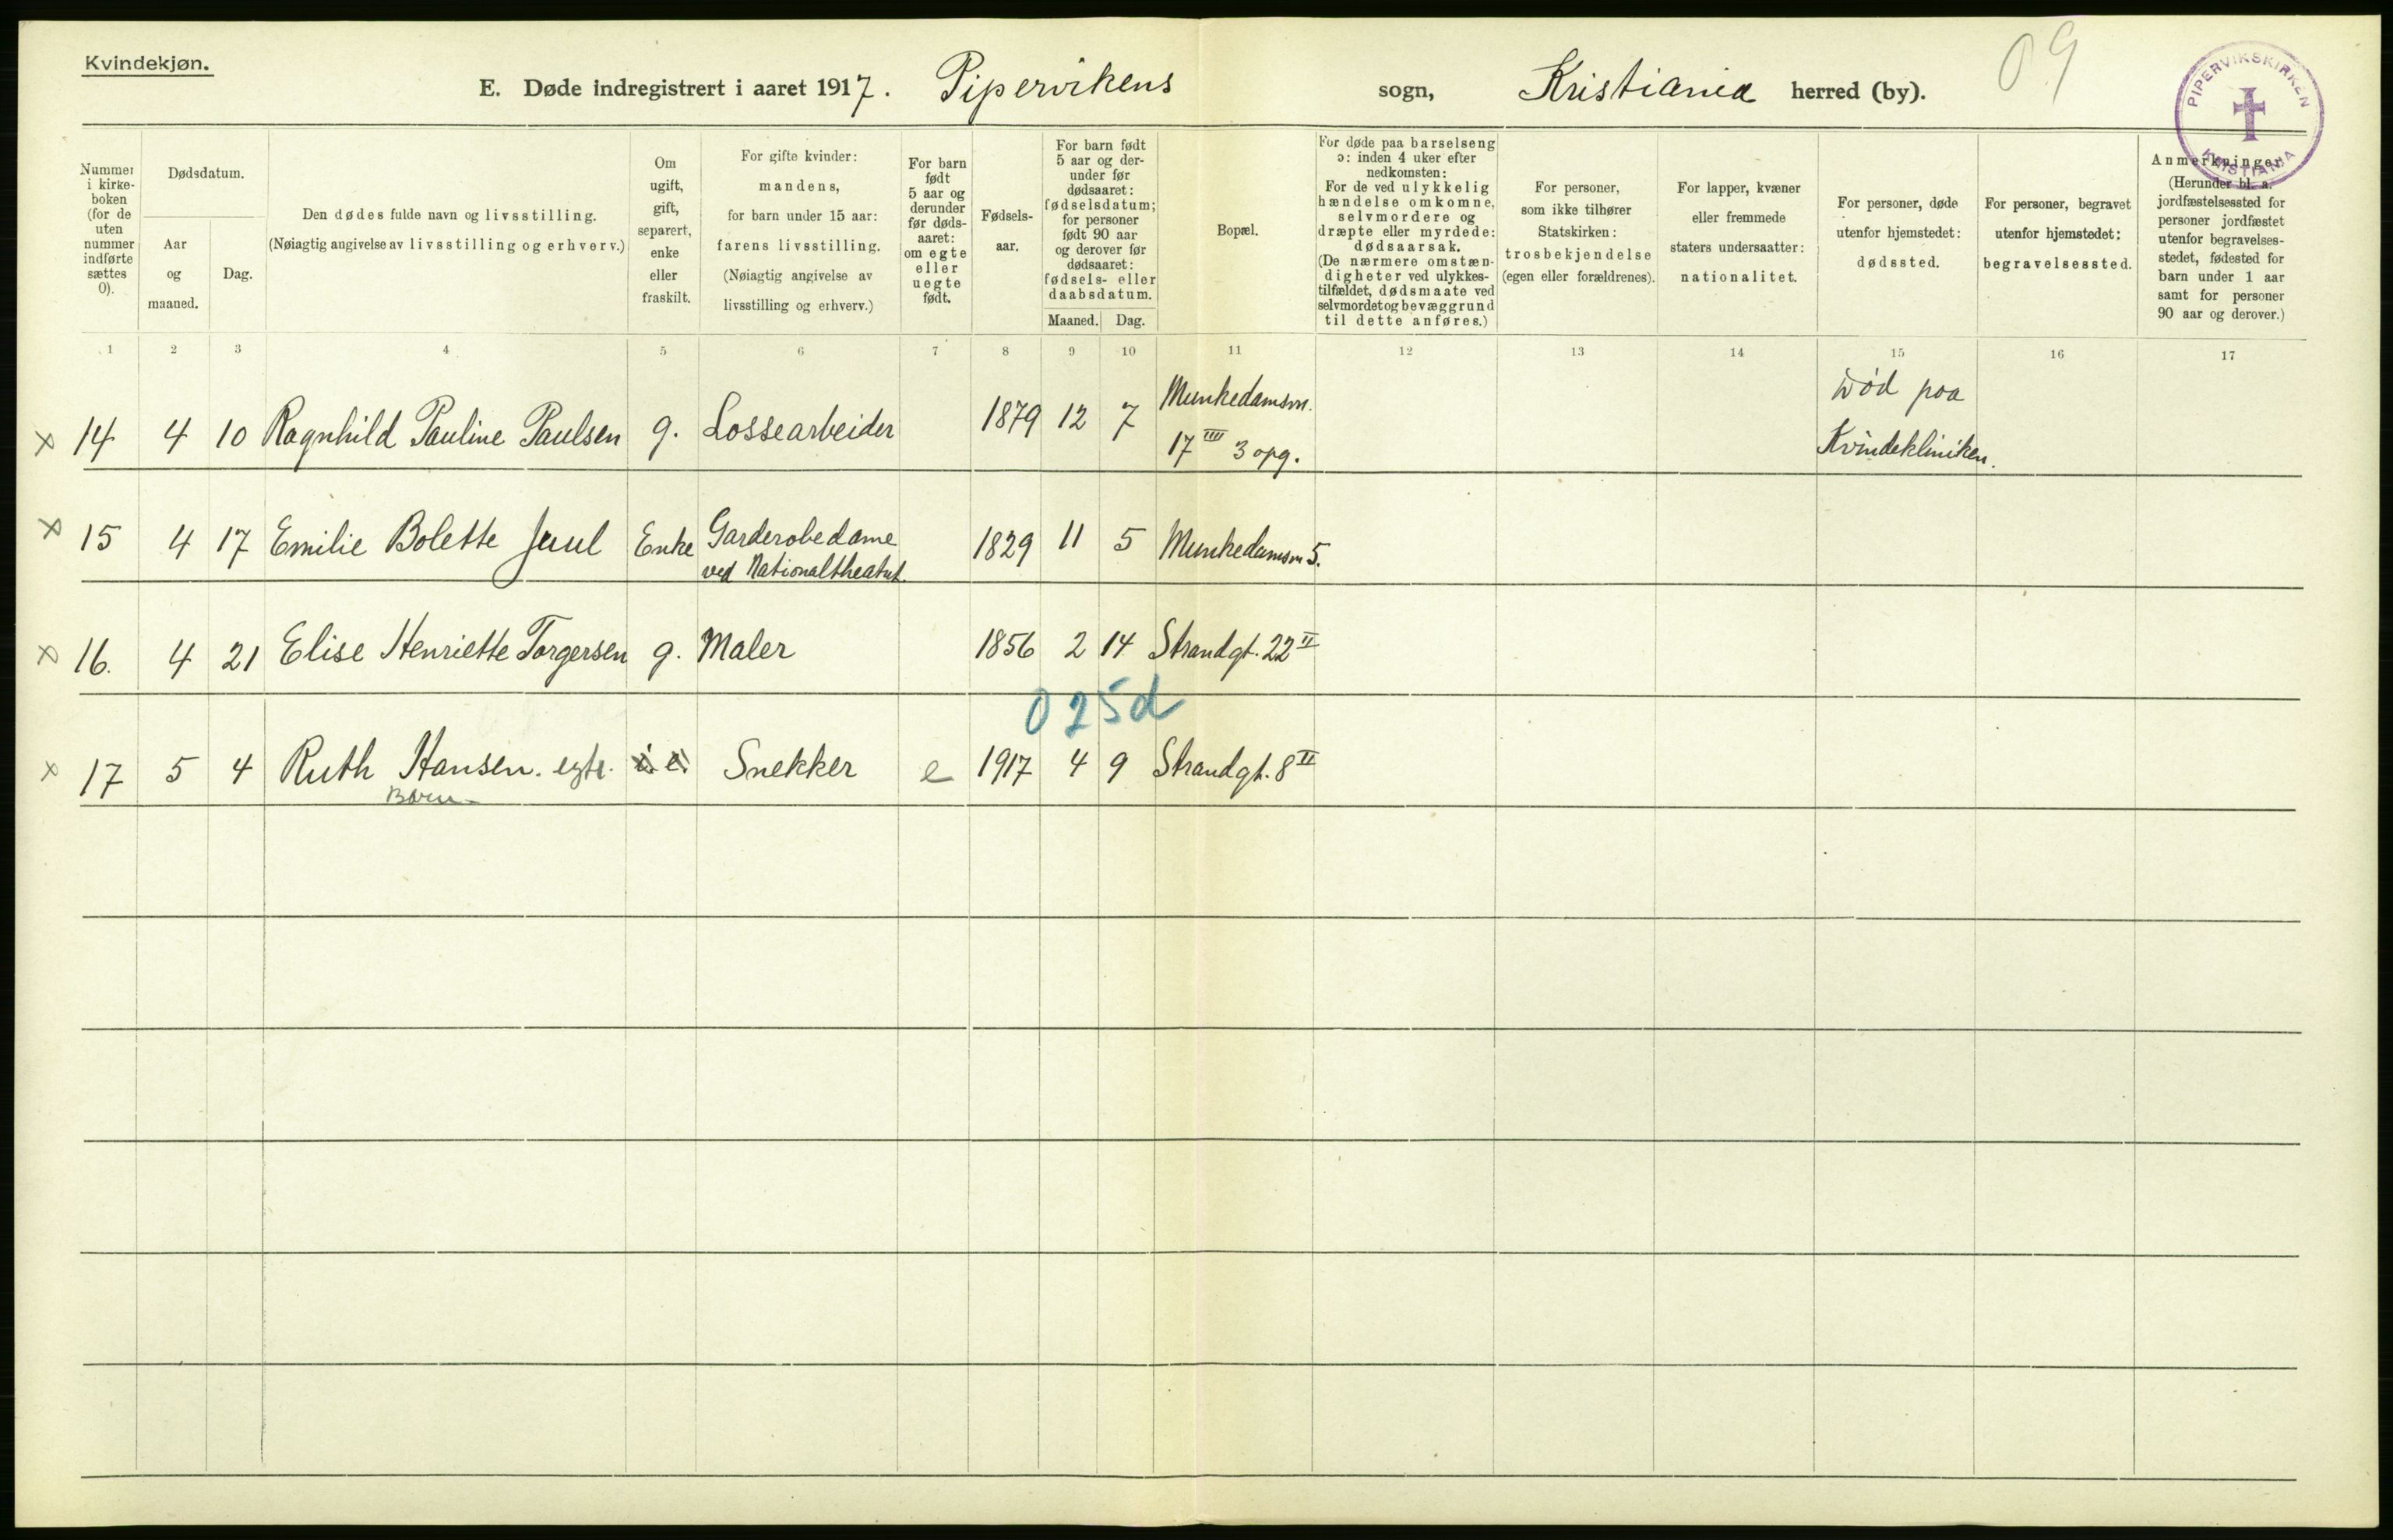 Kvindekjøn.
E. Døde indregistrert i aaret 1917. Pipervikens sogn, Kristiania herred (by).
09
PIPERVIKSKIRKEN
KRISTIANIA
Nummer i kirke-boken (for de uten nummer indførte sættes 0).
Dødsdatum.
Aar og maaned.
Dag.
Den dødes fulde navn og livsstilling.
(Nøiagtig angivelse av livsstilling og erhverv.)
Om ugift, gift, separert, enke eller fraskilt.
For gifte kvinder: mandens, for barn under 15 aar: farens livsstilling. (Nøiagtig angivelse av livsstilling og erhverv.)
For barn født 5 aar og derunder før døds-aaret: om egte eller uegte født.
Fødsels-aar.
For barn født 5 aar og der-under før dødsaaret: fødselsdatum; for personer født 90 aar og derover før dødsaaret: fødsels- eller daabsdatum.
Maaned. Dag.
Bopæl.
For døde paa barselseng ɔ: inden 4 uker efter nedkomsten: For de ved ulykkelig hændelse omkomne, selvmordere og dræpte eller myrdede: dødsaarsak. (De nærmere omstæn-digheter ved ulykkes-tilfældet, dødsmaate ved selvmordet og bevæggrund til dette anføres.)
For personer, som ikke tilhører Statskirken: trosbekjendelse (egen eller forældrenes).
For lapper, kvæner eller fremmede staters undersaatter: nationalitet.
For personer, døde utenfor hjemstedet: dødssted.
For personer, begravet utenfor hjemstedet: begravelsessted.
Anmerkninger. (Herunder bl. a. jordfæstelsessted for personer jordfæstet utenfor begravelses-stedet, fødested for barn under 1 aar samt for personer 90 aar og derover.)
1 2 3 4 5 6 7 8 9 10 11 12 13 14 15 16 17
x 14 4 10 Ragnhild Pauline Paulsen g. Lossearbeider 1879 12 7 Munkedamsvn. 17 IIII 3 opg. Død paa Kvindekliniken.
x 15 4 17 Emilie Bolette Juul Enke Garderobedame ved Nationaltheatret. 1829 11 5 Munkedamsvn 5.
x 16. 4 21 Elise Henriette Torgersen g. Maler 1856 2 14 Strandgt. 22 II
0 25d
x 17 5 4 Ruth Hansen. egte. Snekker e 1917 4 9 Strandgt. 8 II
Barn